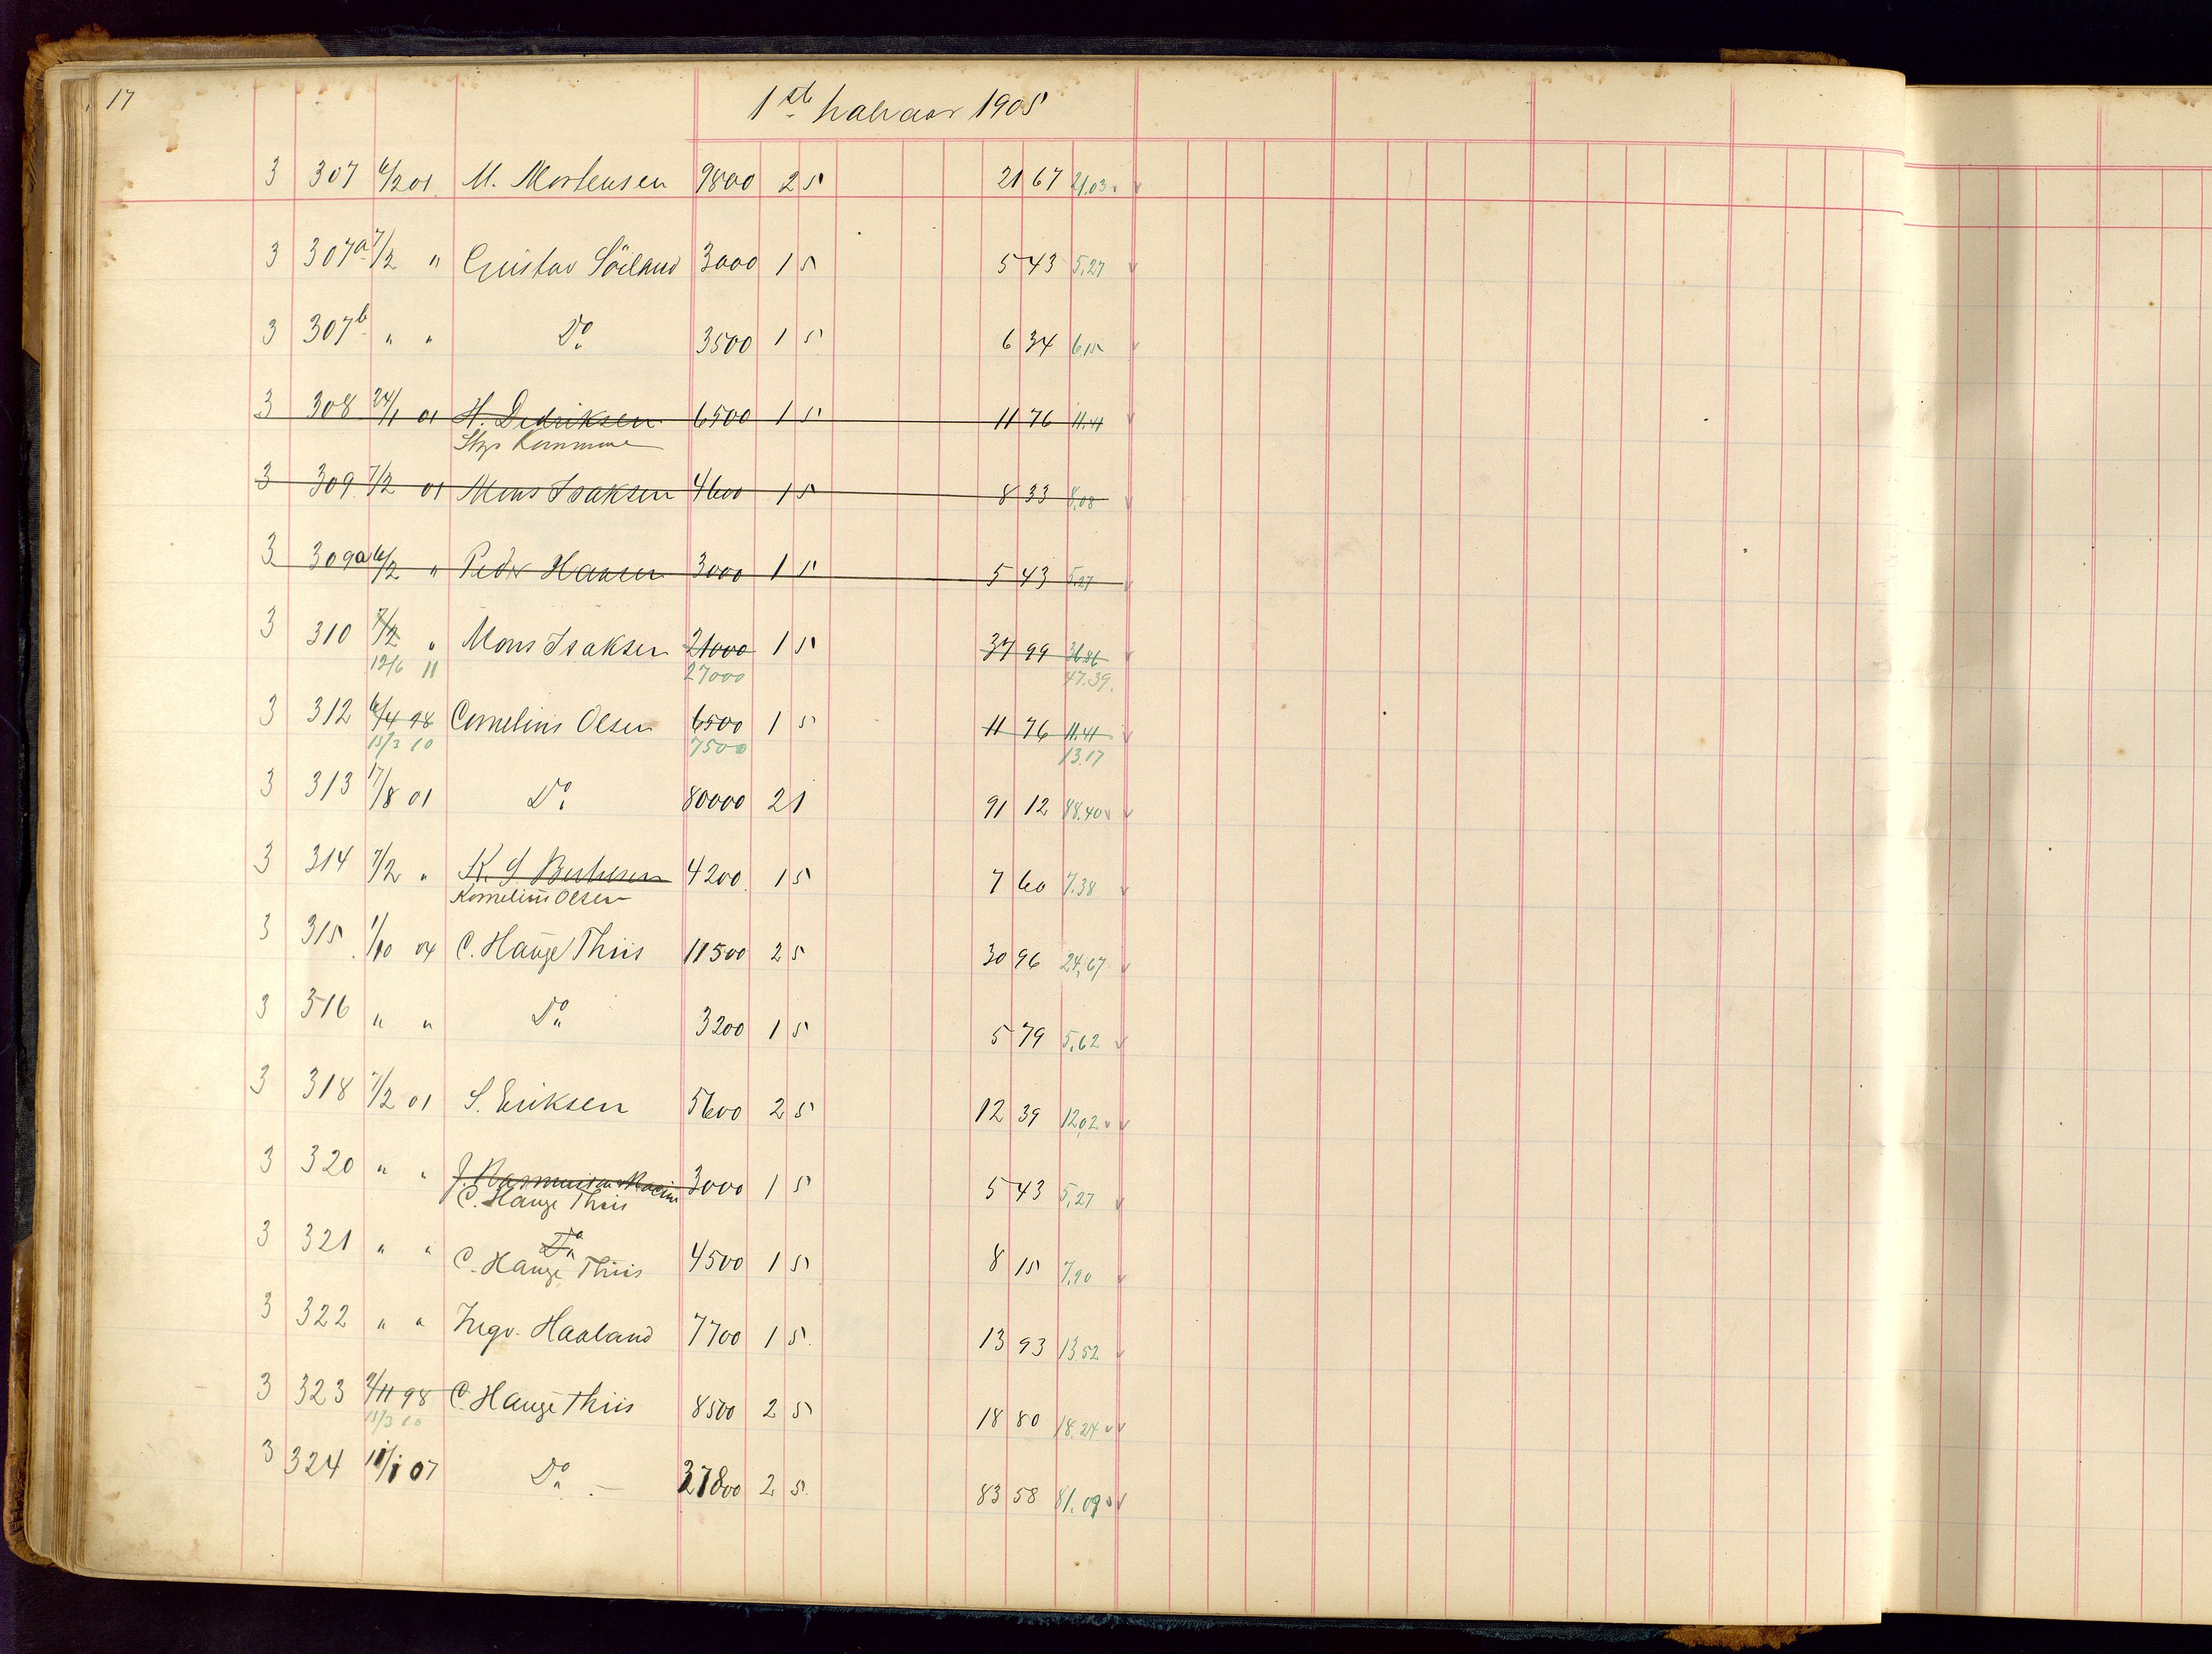 17
1ste halvaar 1905
3 307 6/2 01. M. Mortensen 9800 2 5 21 67 21,03. v
3 307a 7/2 " Gustav Söiland 3000 1 5 5 43 5,27 v
3 307b " " Do 3500 1 5 6 34 6,15 v
3 308 24/1 01 H. Dedriksen 6500 1 5 11 76 11.41 v
Kommune
3 309 7/2 01 Mons Isaksen 4600 1 5 8 33 8,08 v
3 309a 6/2 " Peder Hansen 3000 1 5 5 43 5,27 v
3 310 7/2 " Mons Isaksen 21000 1 5 37 99 36.86 v
12/6 11 27000 47.39.
3 312 6/4 98 Cornelius Olsen 6500 1 5 11 76 11.41 v
15/3 10 7500 13.17
3 313 17/8 01 Do 80000 2 1 91 12 88.40 v v
3 314 7/2 " K. S. 4200. 1 5 7 60 7.38 v
Kornelius Olsen
3 315 1/10 04 C. Hauge Thiis 11500 2 5 30 96 24,67 v
3 316 " " Do 3200 1 5 5 79 5,62 v
3 318 7/2 01 S. Eriksen 5600 2 5 12 39 12,02 v v
3 320 " " J. Rasmussen 3000 1 5 5 43 5,27 v
C. Hauge Thiis
3 321 " " Do 4500 1 5 8 15 7,90 v
C. Hauge Thiis
3 322 " " Ingv. Haaland 7700 1 5 13 93 13 52 v
3 323 2/11 98 C. Hauge Thiis 8500 2 5 18 80 18.24 v v
15/3 10
3 324 11/1 07 Do — 37800 2 5 83 58 81.09 v v